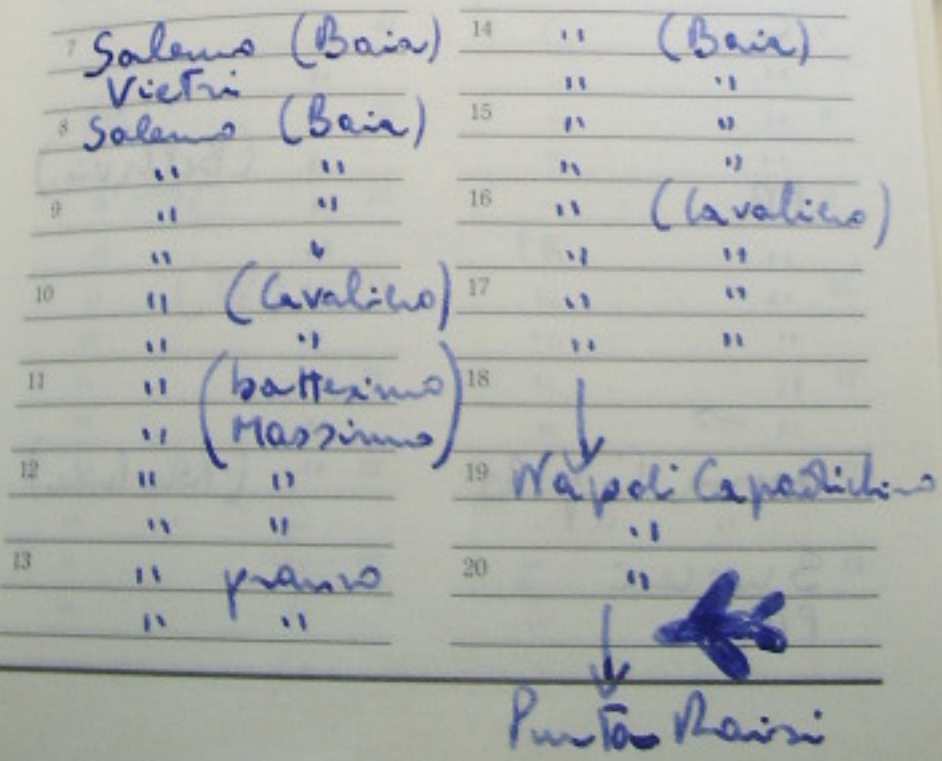 7 Salerno (Baia)
Vietri
8 Salerno (Baia)
" "
9 " "
" "
10 " (Cavaliero)
" "
11 " (battesimo
" Massimo)
12 " "
" "
13 " pranzo
" "
14 " (Baia)
" "
15 " "
" "
16 " (Cavaliero)
" "
17 " "
" "
18
19 Napoli Capodichino
"
20 "
Punta Raisi